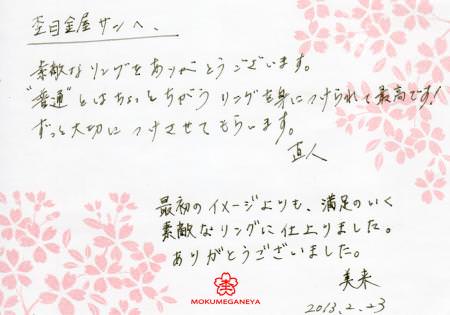 杢目金屋サンへ、
素敵なリングをありがとうございます。
"普通"とはちょっとちがうリングを身につけられて最高です!
ずっと大切につけさせてもらいます。
直人
最初のイメージよりも、満足のいく
素敵なリングに仕上りました。
ありがとうございました。
美来
2013.2.23
MOKUMEGANEYA